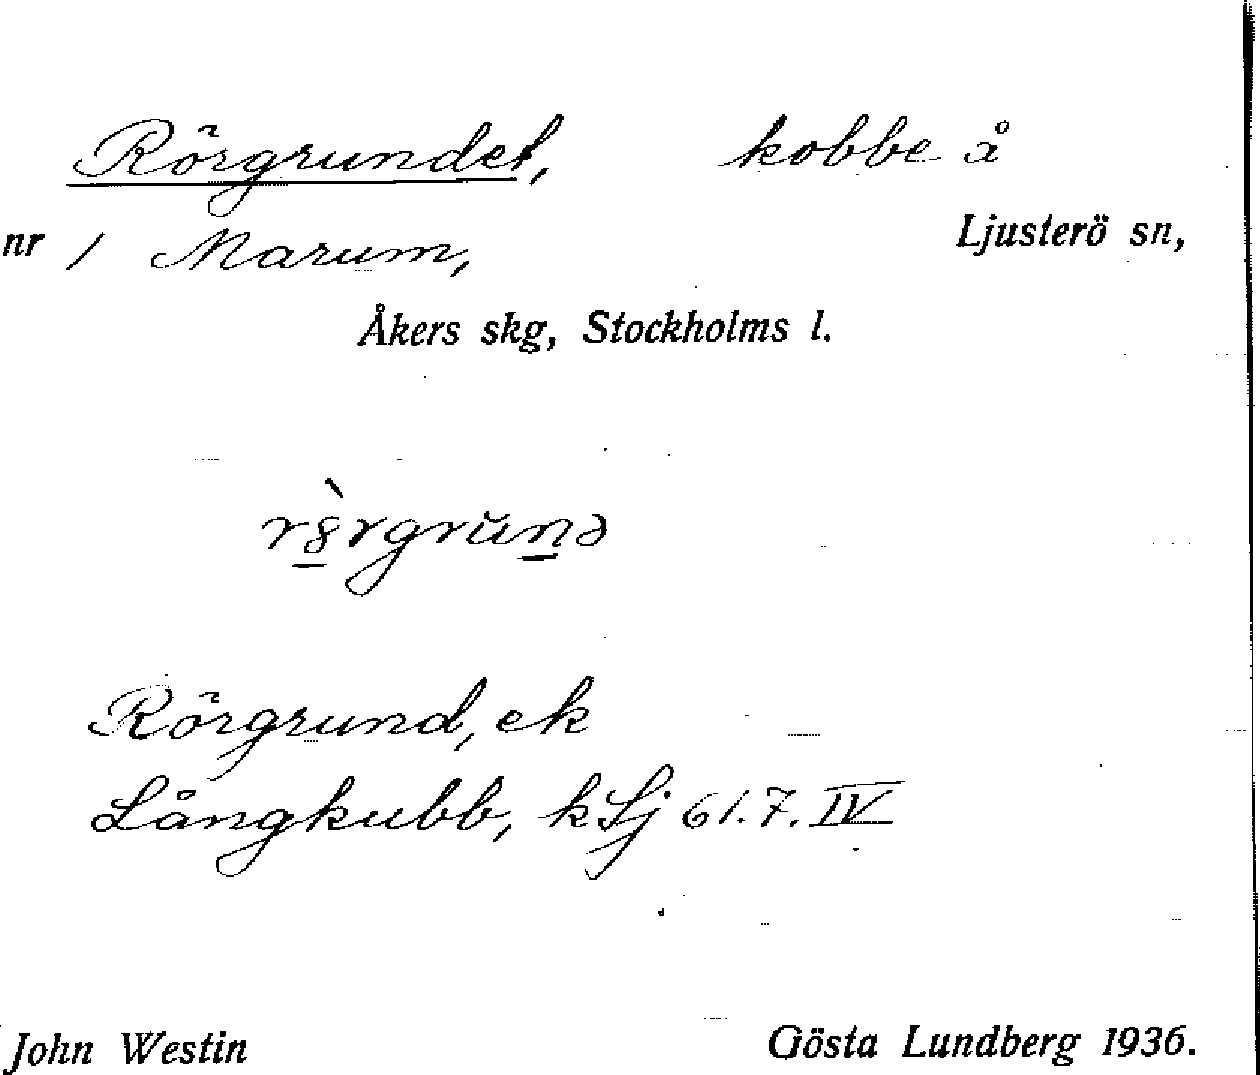 Rörgrundet, kobbe å
nr 1 Marum, Ljusterö sn,
Åkers skg, Stockholms l.
Rörgrund, ek
Långkubb, k Lj 61.7.IV
John Westin Gösta Lundberg 1936.